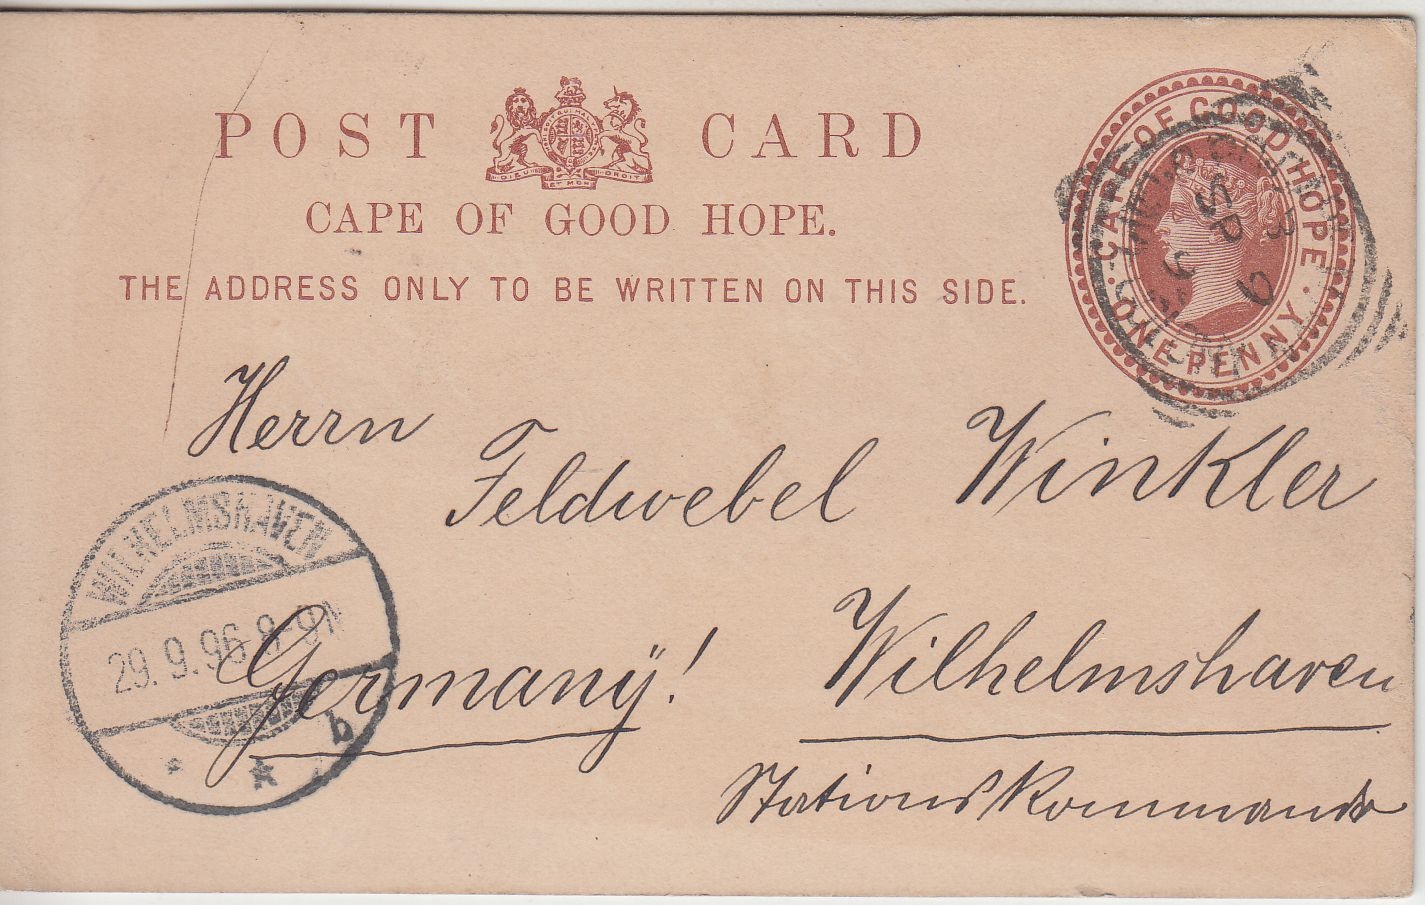 POST CARD
DIEU ET MON DROIT
CAPE OF GOOD HOPE.
THE ADDRESS ONLY TO BE WRITTEN ON THIS SIDE.
CAPE OF GOOD HOPE
ONE PENNY
SP
96
Herrn
Feldwebel Winkler
WILHELMSHAVEN
29. 9. 96. 8-9
b
Germanÿ!
Wilhelmshaven
Stationskommando